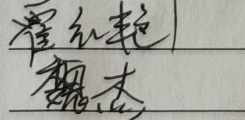 霍红艳
魏杰